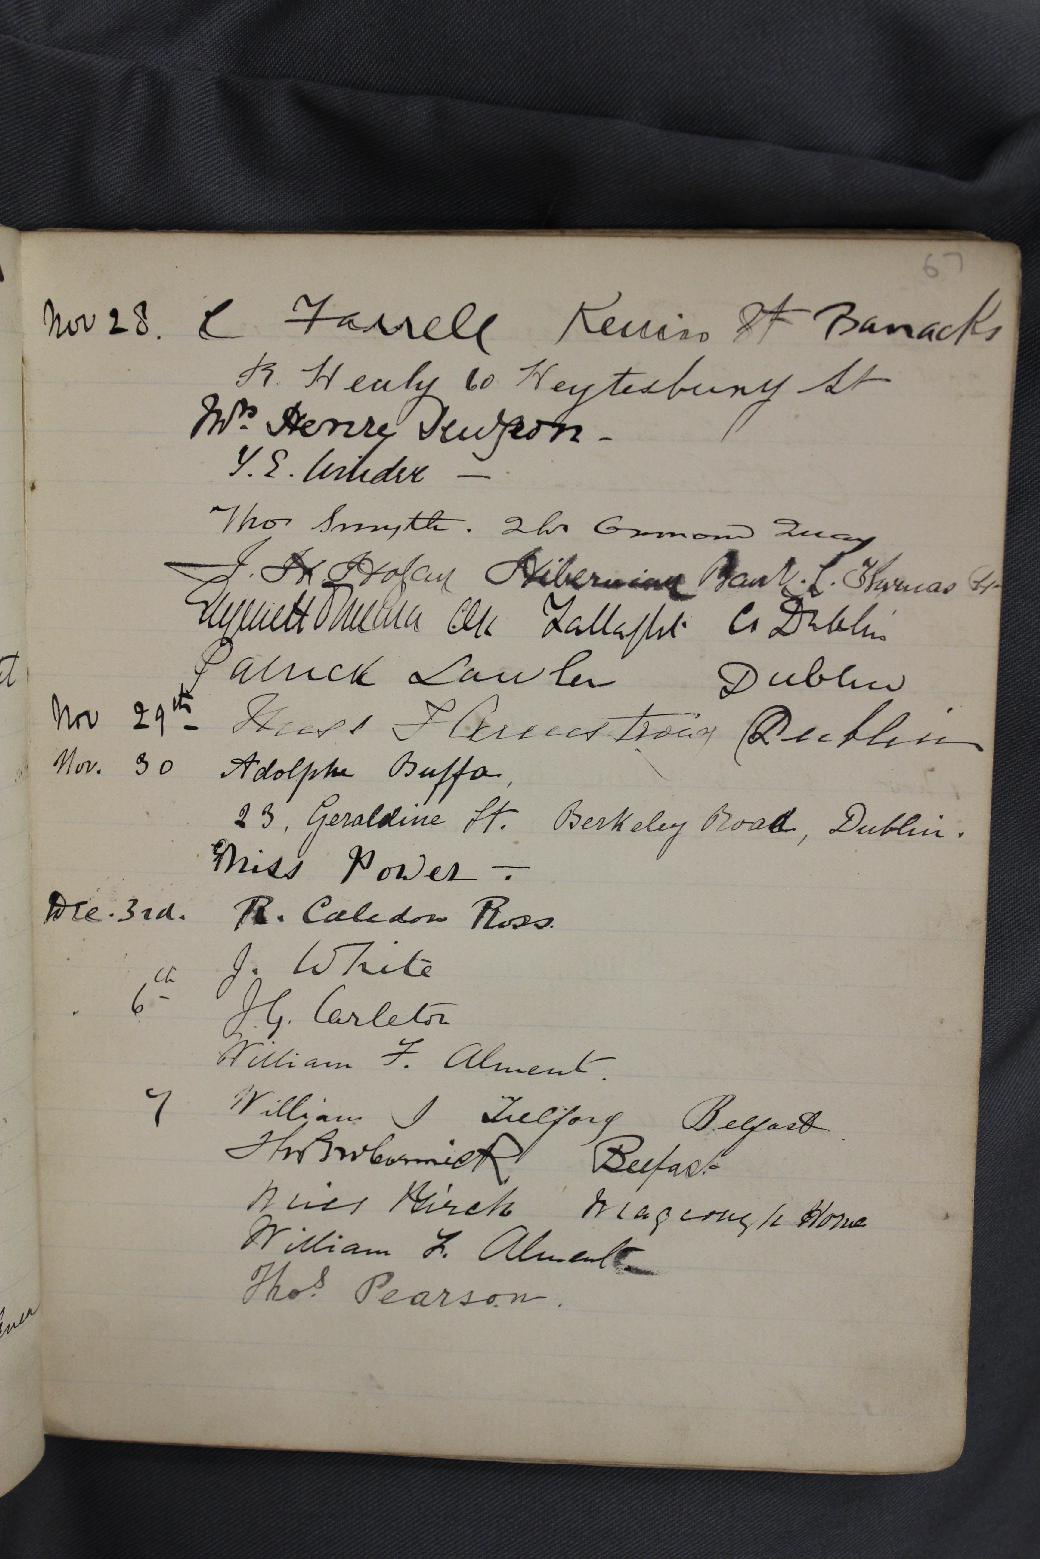 67
Nov 28. C Farrell Kevin St Barracks
R. Healy 60 Heytesbury St
Mrs. Henry
Y. E. Winder —
Thos Smyth. Ormond Quay
J. Hibernian Bank. L. Thomas St.
Tallaght Co Dublin
Patrick Lawler Dublin
Nov 29th Armstrong Dublin
Nov. 30 Adolphe Buffa,
23, Geraldine St. Berkeley Road, Dublin.
Miss Power —.
Dec. 3rd. R. Caledon Ross.
J. White
6th J.G. Carleton
William F. Alment.
7 William J Telford Belfast
Belfast
Miss Hirch Mageough Home
William F. Alment
Thos. Pearson.